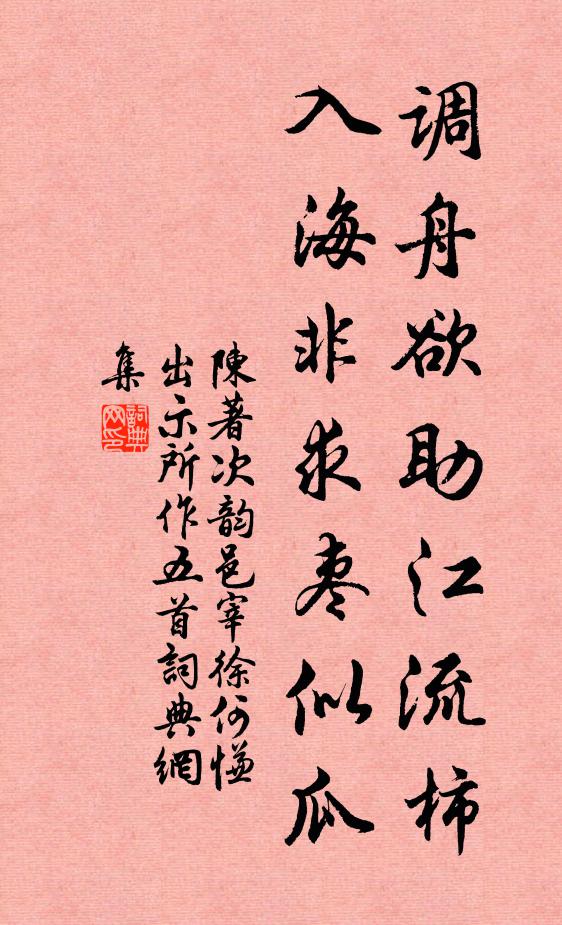 调舟欲助江流柿
入海非求枣似瓜
陳著次韵邑宰徐何慊
出示所作五首詞典網
集
詞典网印